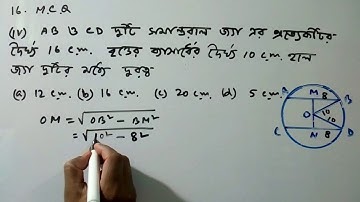 16. M.C.Q
(iv) AB ও CD দুটি সমান্তরাল জ্যা এর প্রত্যেকটির
দৈর্ঘ্য 16 c.m. বৃত্তের ব্যাসার্ধের দৈর্ঘ্য 10 c.m. হলে
জ্যা দুটির মধ্যে দূরত্ব
(a) 12 c.m. (b) 16 c.m. (c) 20 c.m. (d) 5 c.m.
OM = √OB² - BM²
= √10² - 8²
A M 8 B
O 10
10
C N D